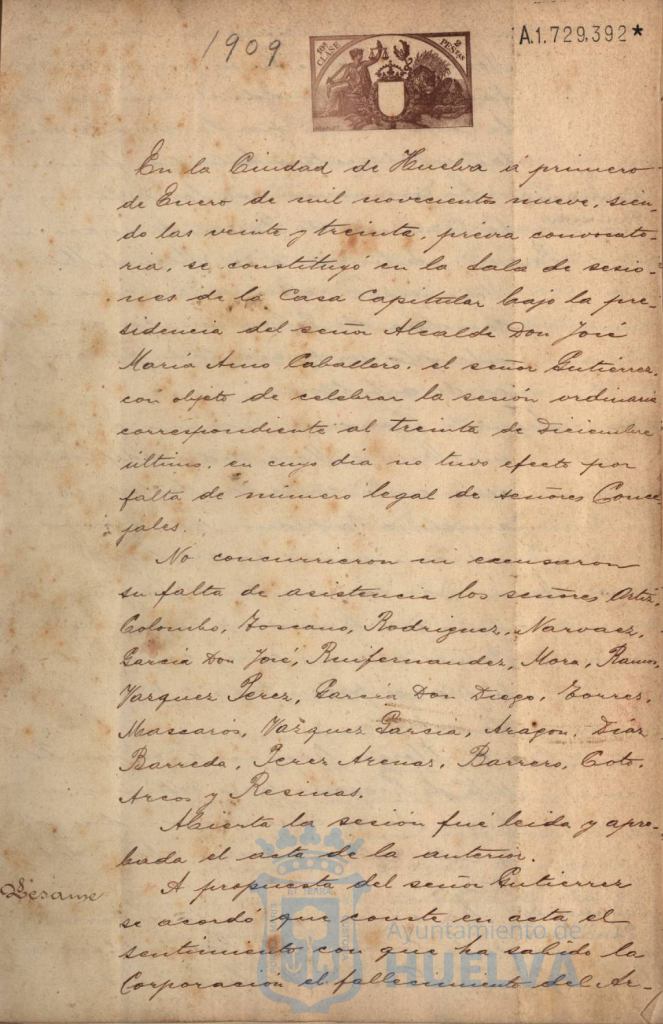 1909
10ª CLASE
2 PESTAS
A.1.729,392*
En la Ciudad de Huelva á primero
de Enero de mil novecientos nueve, sien-
do las veinte y treinta, prévia convocato-
ria, se constituyó en la Sala de sesio-
nes de la Casa Capitular bajo la pre-
sidencia del señor Alcalde Don José
Maria Amo Caballero, el señor Gutiérrez,
con objeto de celebrar la sesión ordinaria
correspondiente al treinta de Diciembre
último, en cuyo dia no tuvo efecto por
falta de número legal de señores Conce-
jales.
No concurrieron ni excusaron
su falta de asistencia los señores Ortiz,
Colombo, Toscano, Rodriguez, Narvaez,
Garcia Don José, Ruifernandez, Mora, Ramos,
Vazquez Perez, Garcia Don Diego, Torres,
Mascarós, Vazquez Garcia, Aragon, Diaz
Barreda, Perez Arenas, Barrero, Coto,
Arcos y Resinas.
Abierta la sesión fué leida y apro-
bada el acta de la anterior.
Pésame
A propuesta del señor Gutierrez
se acordó que conste en acta el
sentimiento con que ha sabido la
Corporacion el fallecimiento del Ar-
Ayuntamiento de
HUELVA